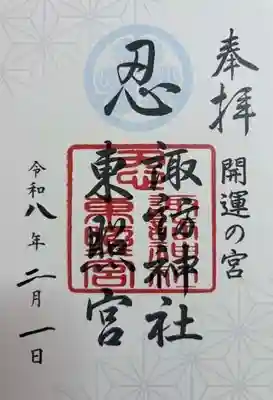 奉拝
開運の宮
忍
諏訪神社
東照宮
令和八年二月一日